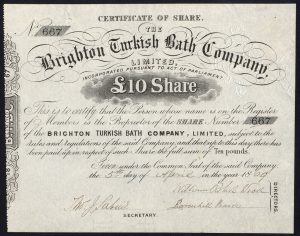 CERTIFICATE OF SHARE.
No 667
THE
Brighton Turkish Bath Company,
LIMITED.
INCORPORATED PURSUANT TO ACT OF PARLIAMENT
£10 Share
This is to certify that the Person whose name is on the Register
of Members is the Proprietor of the SHARE Number 667
of the BRIGHTON TURKISH BATH COMPANY, LIMITED, subject to the
Rules and regulations of the said Company, and that up to this day there has
been paid up in respect of such Share the full sum of Ten pounds.
Given under the Common Seal of the said Company
the 5th day of April in the year 18
SECRETARY.
DIRECTORS.